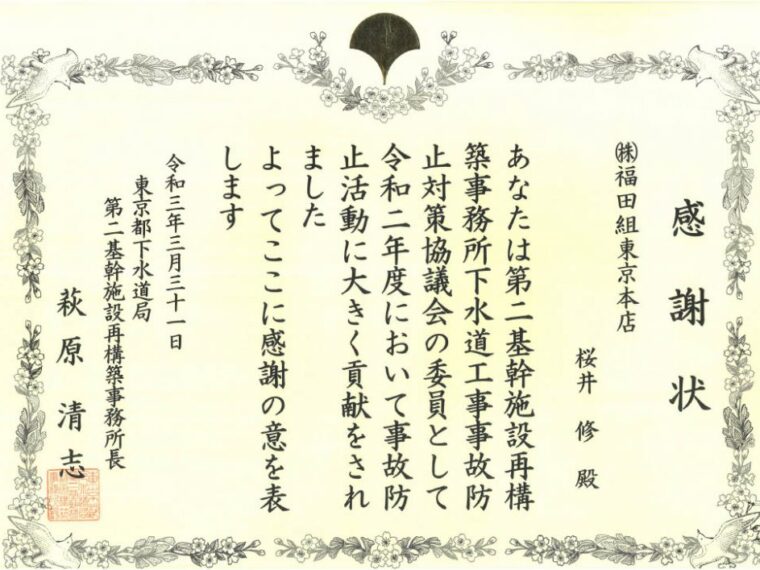 感謝状
㈱福田組東京本店
桜井修殿
あなたは第二基幹施設再構
築事務所下水道工事事故防
止対策協議会の委員として
令和二年度において事故防
止活動に大きく貢献をされ
ました
よってここに感謝の意を表
します
令和三年三月三十一日
東京都下水道局
第二基幹施設再構築事務所長
萩原清志